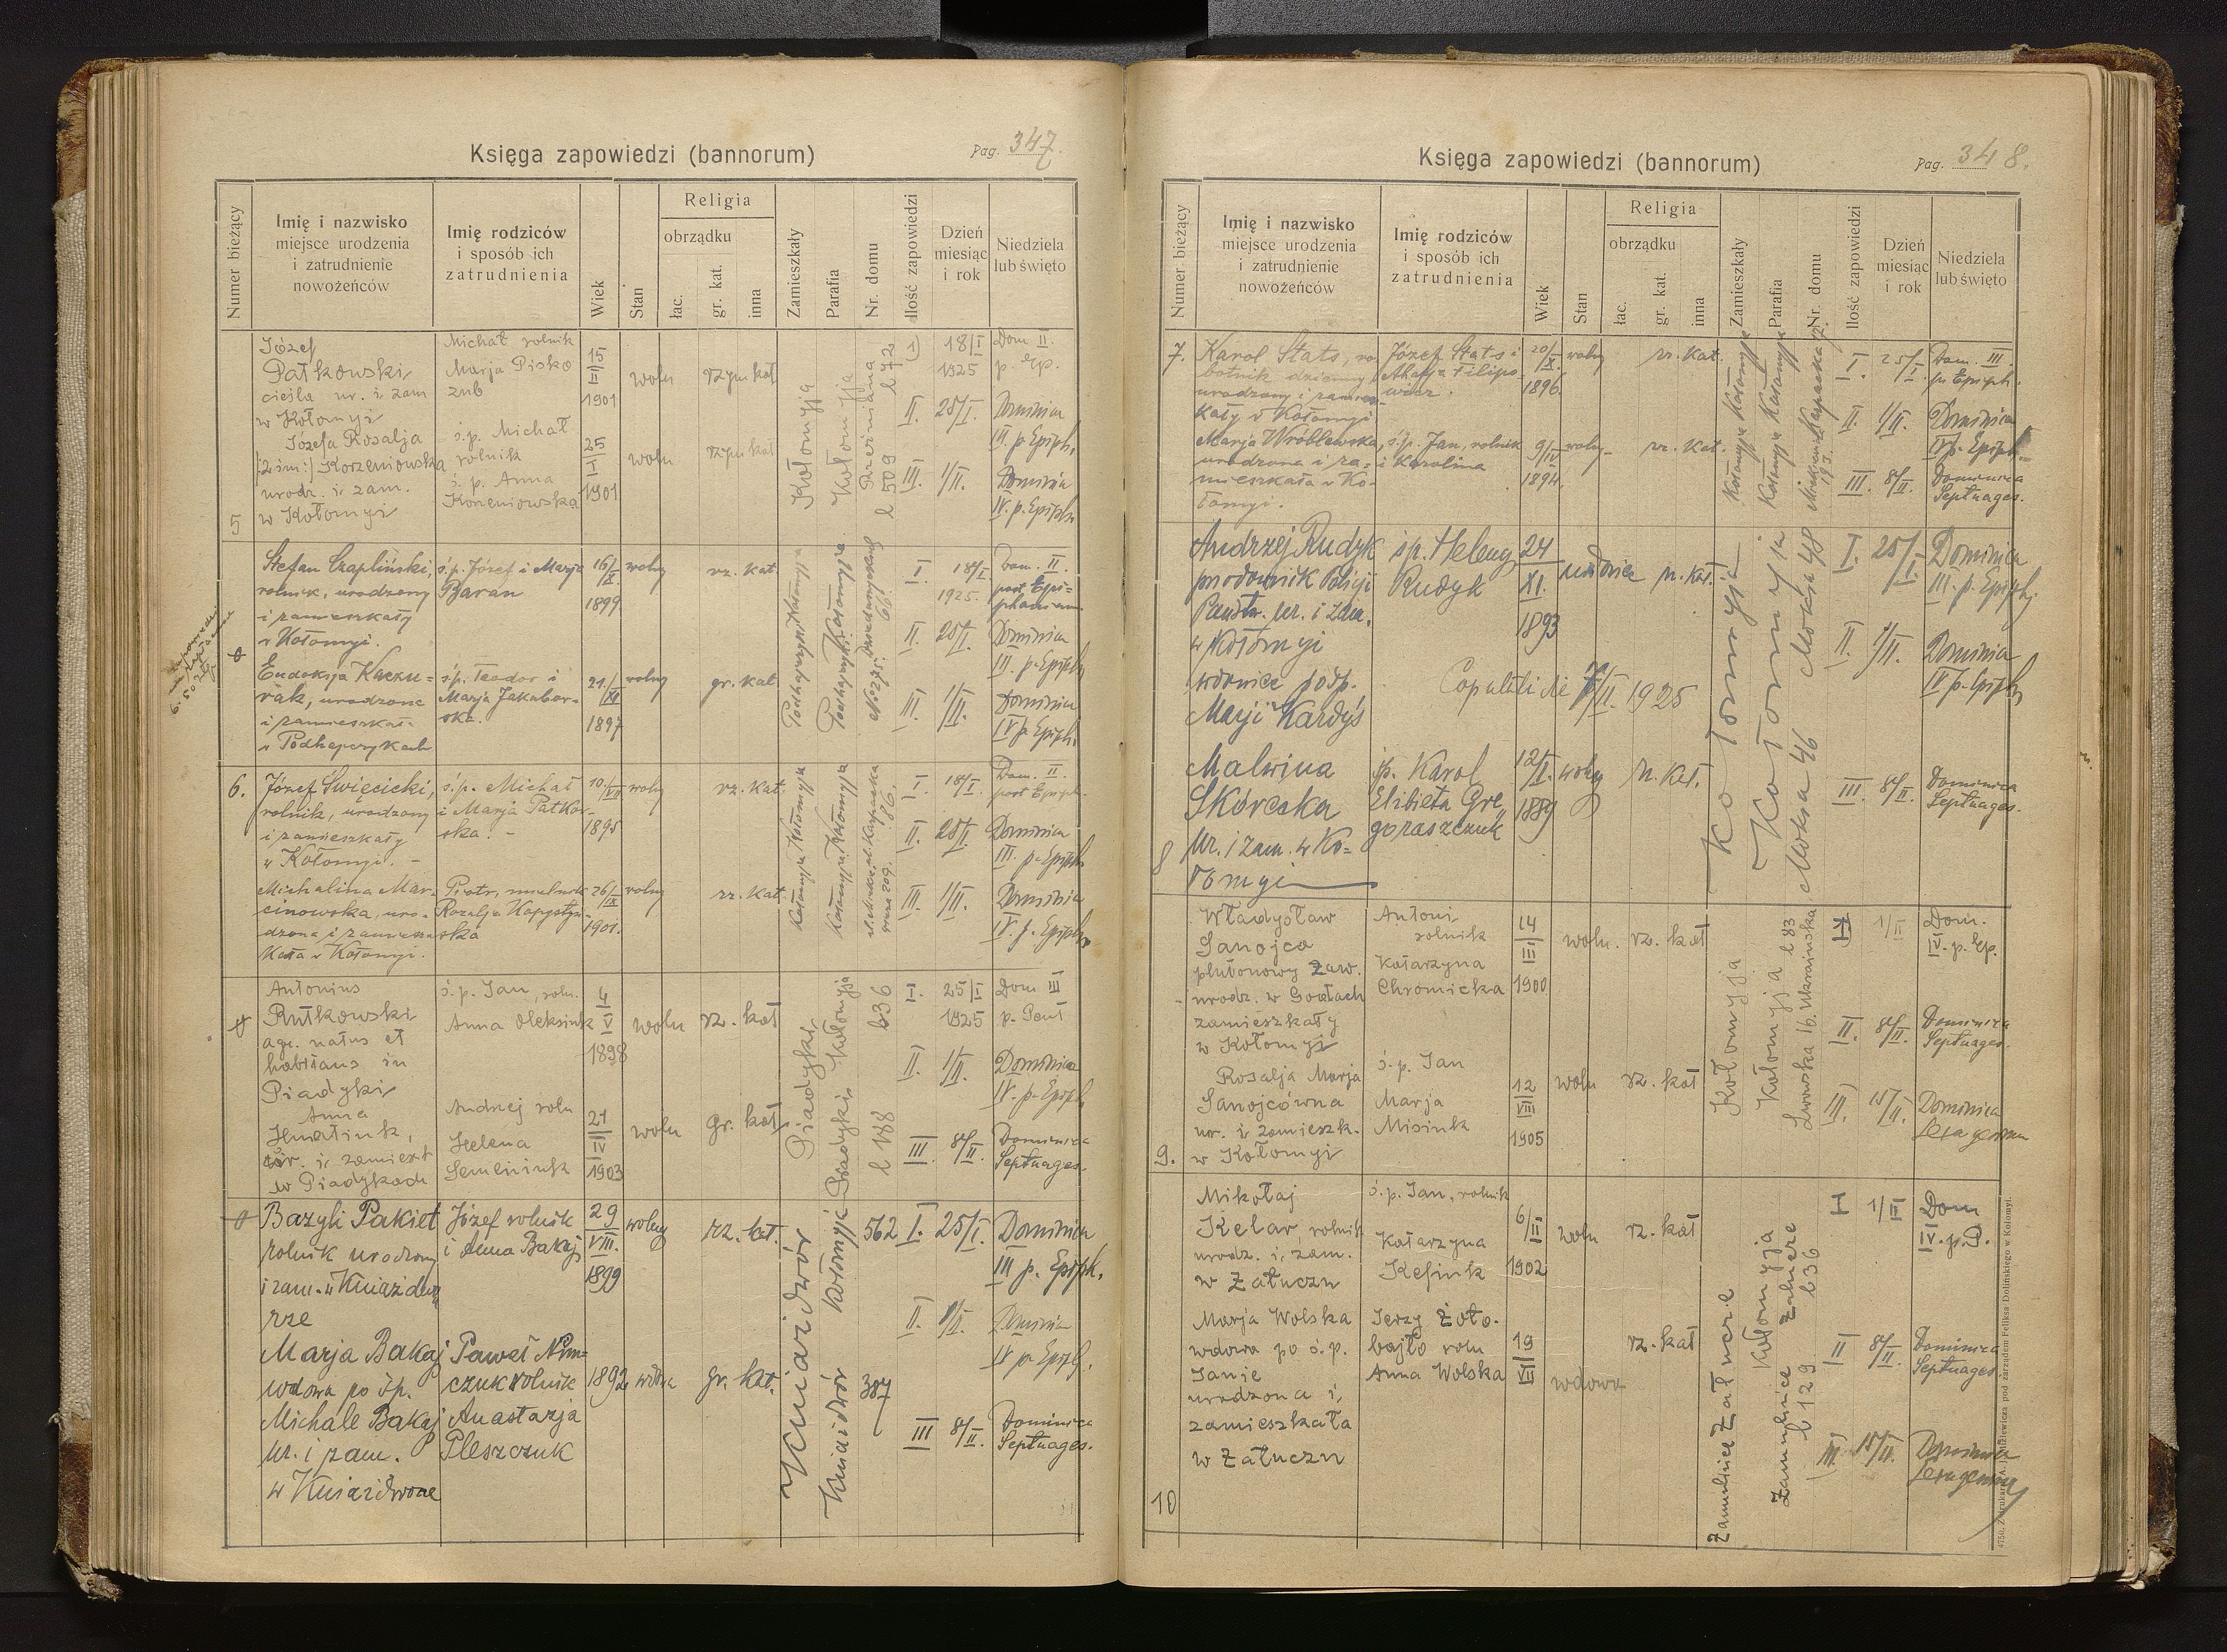 Księga zapowiedzi (bannorum)
Pag. 347.
Numer bieżący
Imię i nazwisko
miejsce urodzenia
i zatrudnienie
nowożeńców
Imię rodziców
i sposób ich
zatrudnienia
Wiek
Stan
Religia
obrządku
łac.
gr. kat.
inna
Zamieszkały
Parafia
Nr. domu
Ilość zapowiedzi
Dzień
miesiąc
i rok
Niedziela
lub święto
5
Józef
Pałkowski
cieśla ur. i zam
w Kołomyi
Michał rolnik
Marja Pisko
zub
15
III
1901
woln
rzym kat
Józefa Rosalja
(2 im:) Korzeniowska
urodz. i zam.
w Kołomyi
ś.p. Michał
rolnik
ś.p. Anna
Korzeniowska
25
1901
woln
rzym kat
Kołomyja
Kołomyja
l 509 l 72
I 18/I 1925 Dom II. p. Ep.
II. 25/I. Dominica III. p. Epiph.
III. 1/II. Dominica IV. p. Epiph.
Stefan Czapliński,
rolnik, urodzony
i zamieszkały
w Kołomyi.
ś.p. Józef i Marja
Baran
16/X
1899
wolny
rz. kat.
Eudoksja Kaczu=
rak, urodzona
i zamieszkała
w Podhajczykach
ś.p. Teodor i
Marja Jakubow-
ska.
21/XI
1897
wolny
gr. kat.
Podhajczyki Kołomyja
Podhajczyki Kołomyja
I. 18/I. 1925. Dom. II. post Epi-
phaniam
II. 25/I. Dominica III. p. Epiph.
III. 1/II. Dominica IV p. Epiph.
6.
Józef Święcicki,
rolnik, urodzony
i zamieszkały
w Kołomyi. -
ś.p. Michał
i Marja Patkow-
ska. -
1895
wolny
rz. kat.
Michalina Mar-
cinowska, uro-
dzona i zamiesz-
kała w Kołomyi.
Piotr,
Rozalja Kopystyń-
ska
26/IX
1901.
wolny
rz. kat.
Kołomyja Kołomyja
Kołomyja Kołomyja
I. 18/I. Dom. II. post Epiph.
II. 25/I. Dominica III. p. Epiph.
III. 1/II. Dominica IV. p. Epiph.
Antonius
Rutkowski
agr. natus et
habitans in
Piadyki
ś.p. Jan, roln.
Anna Oleksiuk
14
V
1898
woln
rz. kat
Anna
Hnatiuk,
ur. i zamiesz
w Piadykach
Andrzej roln
Helena
Semeniuk
21
IV
1903
woln
gr. kat
Piadyki
Piadyki Kołomyja
l 188 l 36
I. 25/I 1925 Dom III p. Pent
II. 1/II. Dominica IV. p. Epiph.
III. 8/II. Dominica Septuages.
Bazyli Pakiet
rolnik urodzony
i zam. w Kniaźdwo
rze
Józef rolnik
i Anna Bakaj
29
VIII.
1899
wolny
rz. kat.
Marja Bakaj
wdowa po ś.p.
Michale Bakaj
ur. i zam.
w Kniaźdworze
Paweł Nim=
czuk rolnik
Anastazja
Pleszczuk
1892
wdowa
gr. kat.
Kniaźdwór
Kniaźdwór Kołomyja
562
387
I. 25/I. Dominica III p. Epiph.
II. 1/II. Dominica IV p. Epiph.
III 8/II. Dominica Septuages.
Księga zapowiedzi (bannorum)
Pag. 348.
Numer bieżący
Imię i nazwisko
miejsce urodzenia
i zatrudnienie
nowożeńców
Imię rodziców
i sposób ich
zatrudnienia
Wiek
Stan
Religia
obrządku
łac.
gr. kat.
inna
Zamieszkały
Parafia
Nr. domu
Ilość zapowiedzi
Dzień
miesiąc
i rok
Niedziela
lub święto
7.
Karol Stats, ro-
botnik dzienny
urodzony i zamiesz-
kały w Kołomyi
Józef Stats i
Marja Filipo-
wicz.
20/X.
1896.
wolny
rz. kat.
Marja Wróblewska,
urodzona i za-
mieszkała w Ko-
łomyi.
ś.p. Jan, rolnik
i Karolina
9/IV
1894.
wolny
rz. kat.
Kołomyja Kołomyja
Kołomyja Kołomyja
I. 25/I. Dom. III. p. Epiph.
II. 1/II. Dominica IV p. Epiph.
III. 8/II. Dominica Septuages.
8
Andrzej Rudyk
przodownik Policji
Państw. ur. i zam.
w Kołomyi
wdowiec po śp.
Marji Kardyś
śp. Heleny
Rudyk
24
XI.
1893
wdowiec
rz. kat.
Copulati die /II. 1925
Malwina
Skórcska
ur. i zam. w Ko=
łomyi
śp. Karol
Elżbieta Gre
goraszczuk
12/I.
1889
wolny
rz. kat.
Kołomyja
Kołomyja
Mokra 46 Mokra 48
I. 25/I. Dominica III. p. Epiph.
II. 1/II. Dominica IV p. Epiph.
III. 8/II. Dominica Septuages.
9.
Władysław
Sanojca
plutonowy zaw.
urodz. w
zamieszkały
w Kołomyi
Antoni
rolnik
Katarzyna
Chromicka
14
III
1900
woln.
rz. kat
Rosalja Marja
Sanojcówna
ur. i zamieszk.
w Kołomyi
ś.p. Jan
Marja
Misiuk
12
VIII
1905
woln
rz. kat
Kołomyja
Kołomyja l 83
Lwowska 16. Ukraińska
I 1/II Dom. IV. p. Ep.
II. 8/II. Dominica Septuages.
III. 15/II. Dominica Sexagesima
10
Mikołaj
Kelar, rolnik
urodz. i zam.
w Załuczu
ś.p. Jan, rolnik
Katarzyna
Kefiuk
6/II
1902
woln
rz. kat
Marja Wolska
wdowa po ś.p.
Janie
urodzona i
zamieszkała
w Załuczu
Jerzy Żoło-
bajło roln
Anna Wolska
19
VII
wdowa
rz. kat
Kołomyja
l 129 l 36
I 1/II Dom IV. p. P.
II 8/II. Dominica Septuages.
III. 15/II. Dominica Sexagesima